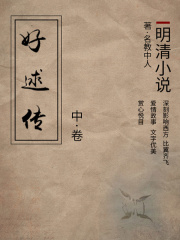 明清小说
深刻影响西方 比翼齐飞
爱情故事 文字优美
赏心悦目
著·名教中人
好逑传
中·卷